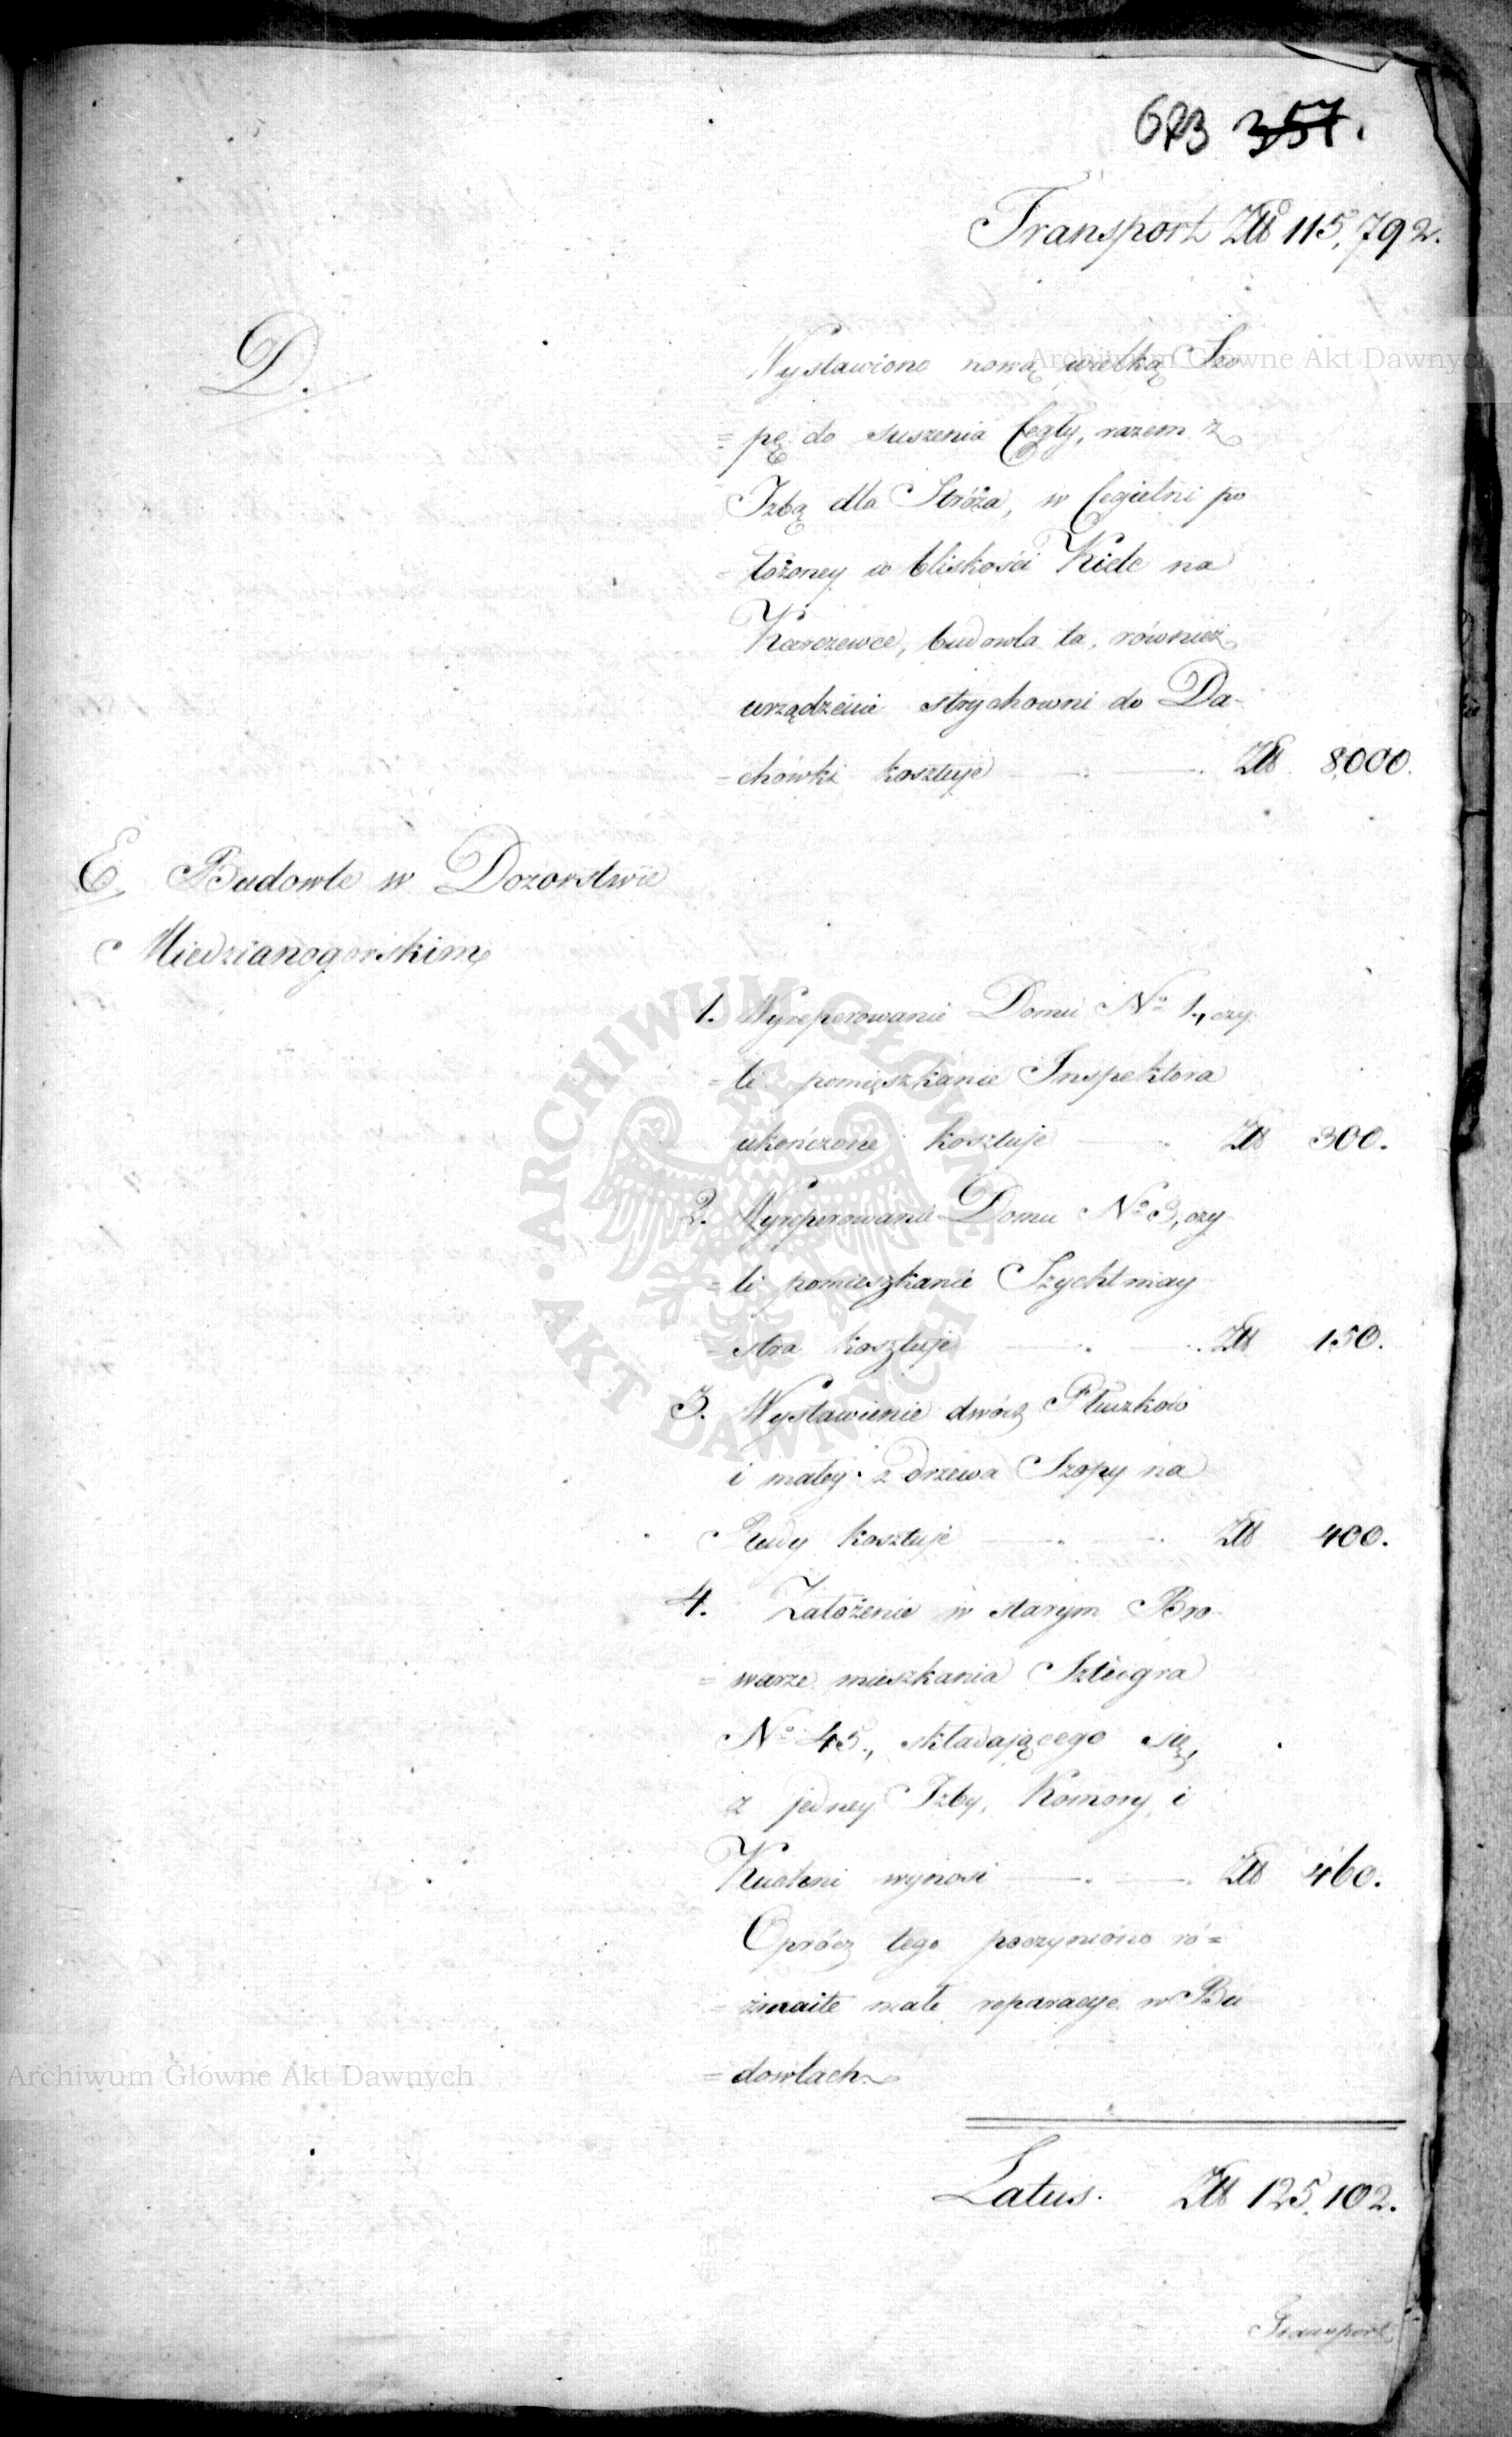 673 357.
Transport Złł 115,792.
D.
Wystawiono nową wielką Szo
= pę do suszenia Cegły, razem z
Izbą dla Stróża, w Cegielni po
= łożoney w bliskości Kielc na
Karczewce, budowla ta, również
urządzenie strychowni do Da-
= chówki kosztuje Złł 8000.
E. Budowle w Dozorstwie
Miedzianogorskim
1. Wyreperowanie Domu No 1., czy-
= li pomięszkanie Inspektora
ukończone kosztuje Złł 300.
2. Wyreperowanie Domu No 3, czy-
= li pomieszkanie Szychtmay
= stra kosztuje Złł 150.
3. Wystawienie dwóch Płuczków
i małey z drzewa Szopy na
Rudy kosztuje Złł 400.
4. Założenie w starym Bro-
= warze mieszkania Szteigra
No 45., składającego się,
z jedney Izby, Komory i
Kuchni wynosi Złł 460.
Oprócz tego poczyniono ró=
= żmaite małe reparacye w Bu
= dowlach.
Latus. Złł 125,102.
Transport
Archiwum Główne Akt Dawnych
ARCHIWUM GŁÓWNE AKT DAWNYCH
Archiwum Główne Akt Dawnych